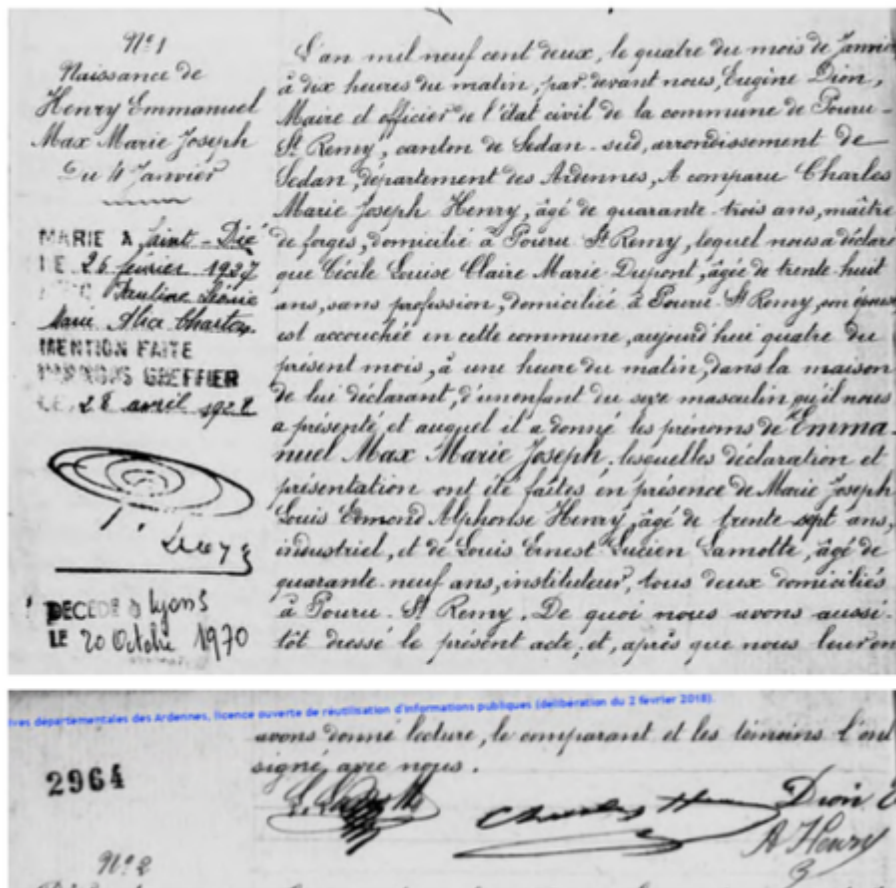 N° 1
Naissance de
Henry Emmanuel
Max Marie Joseph
Du 4 Janvier
MARIE A Saint-Dié
LE 26 février 1927
Pauline
Marie Alice
MENTION FAITE
PAR NOUS GREFFIER
LE 28 avril
DECEDE à Lyons
LE 20 Octobre 1970
L'an mil neuf cent deux, le quatre du mois de Janvie
à dix heures du matin, par devant nous, Eugène Dion,
Maire et officier de l'état civil de la commune de Pouru-
St Remy, canton de Sedan-sud, arrondissement de
Sedan, département des Ardennes, A comparu Charles
Marie Joseph Henry, âgé de quarante-trois ans, maître
de forges, domicilié à Pouru St Remy, lequel nous a déclaré
que Cécile Louise Claire Marie Dupont, âgée de trente-huit
ans, sans profession, domiciliée à Pouru-St Remy, son épouse
est accouchée en cette commune, aujourd'hui quatre du
présent mois, à une heure du matin, dans la maison
de lui déclarant, d'un enfant du sexe masculin qu'il nous
a présenté et auquel il a donné les prénoms de Emma-
nuel Max Marie Joseph, lesquelles déclaration et
présentation ont été faites en présence de Marie Joseph
Louis Edmond Alphonse Henry, âgé de trente-sept ans,
industriel, et de Louis Ernest Lucien Lamotte, âgé de
quarante-neuf ans, instituteur, tous deux domiciliés
à Pouru-St Remy. De quoi nous avons aussi-
tôt dressé le présent acte, et, après que nous leur en
ives départementales des Ardennes, licence ouverte de réutilisation d'informations publiques (délibération du 2 février 2018).
avons donné lecture, le comparant et les témoins l'ont
signé avec nous.
2964
Charles Dion
A Henry
N° 2